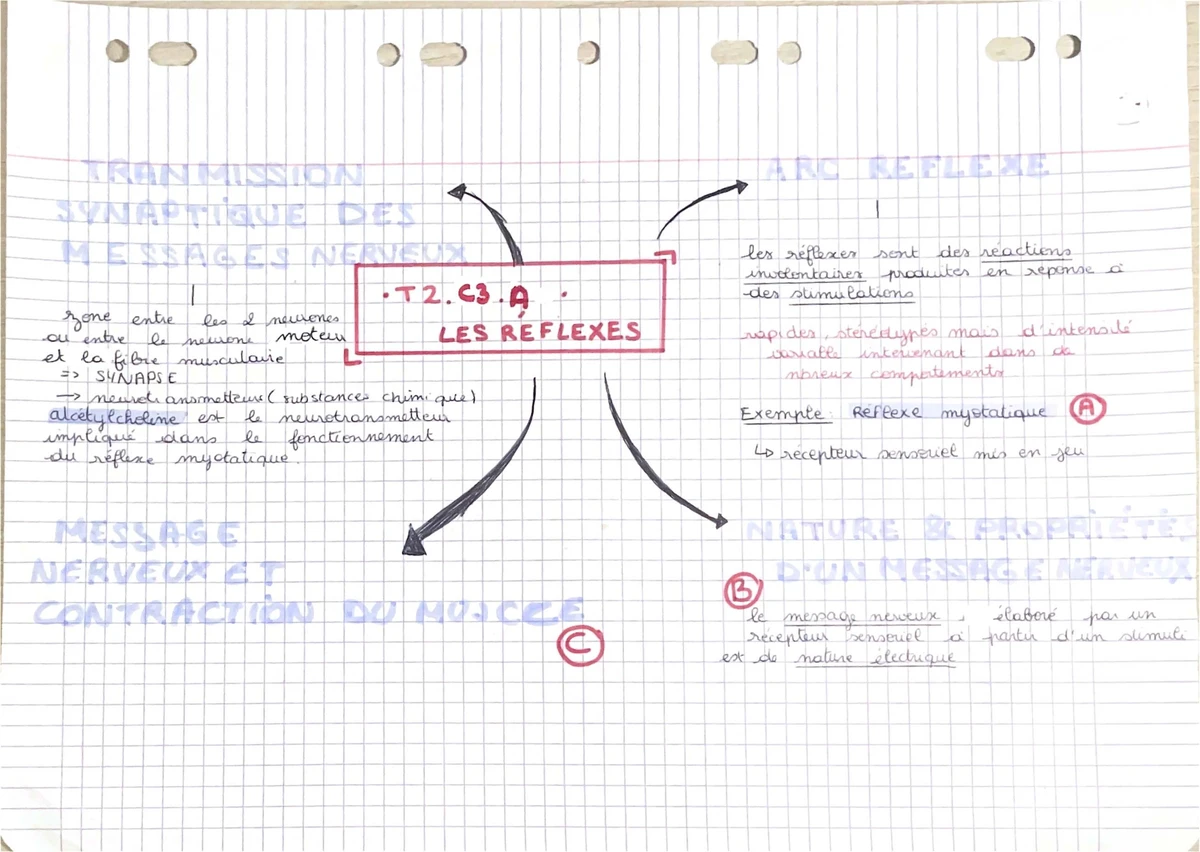 TRANMISSION
SYNAPTIQUE DES
MESSAGES NERVEUX
zone entre les 2 neurones
ou entre le neurone moteur
et la fibre musculaire
=> SYNAPSE
→ neurotransmetteur (substances chimique)
alcétylcholine est le neurotransmetteur
impliqué dans le fonctionnement
du réflexe myotatique.
ARC REFLEXE
les réflexes sont des réactions
involontaires produites en réponse à
des stimulations
rapides, stéréotypés mais d'intensité
variable intervenant dans de
nbreux comportements
Exemple: Réflexe myotatique A
↳ récepteur sensoriel mis en jeu
• T2. C3. A •
LES RÉFLEXES
MESSAGE
NERVEUX ET
CONTRACTION DU MUSCLE
C
NATURE & PROPRIÉTÉS
D'UN MESSAGE NERVEUX
B
le message nerveux, élaboré par un
récepteur sensoriel à partir d'un stimuli
est de nature électrique